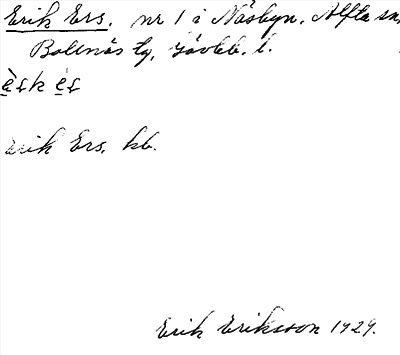 Erik Ers. nr 1 i Näsbyn, Alfta sn,
Bollnäs tg, Gävleb. l.
Erik Ers. kb.
Erik Eriksson 1929.